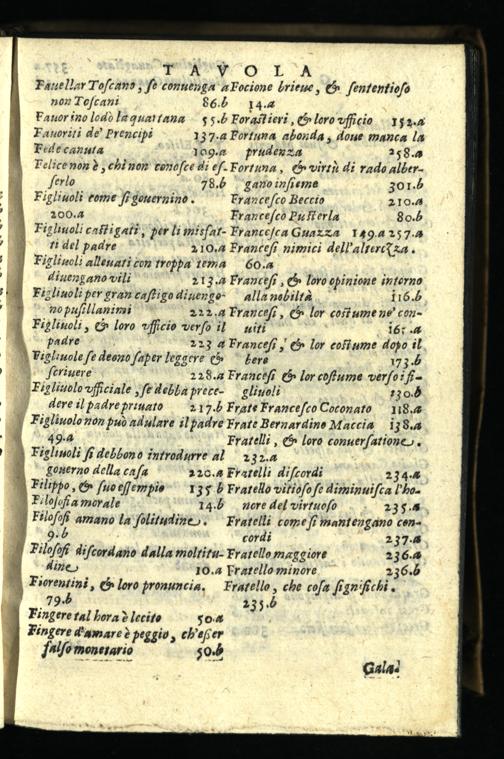 TAVOLA
Fauellar Toscano, se conuenga a
non Toscani 86.b
Fauorino lodò la quartana 55.b
Fauoriti de' Prencipi 137.a
Fede canuta 109.a
Felice non è, chi non conosce di es-
serlo 78.b
Figliuoli come si gouernino.
200.a
Figliuoli castigati, per li misfat-
ti del padre 210.a
Figliuoli alleuati con troppa tema
diuengano vili 213.a
Figliuoli per gran castigo diuengo-
no pusillanimi 222.a
Figliuoli, & loro vfficio verso il
padre 223 a
Figliuole se deono saper leggere &
scriuere 228.a
Figliuolo vfficiale, se debba prece-
dere il padre priuato 217.b
Figliuolo non può adulare il padre
49.a
Figliuoli si debbono introdurre al
gouerno della casa 220.a
Filippo, & suo essempio 135 b
Filosofia morale 14.b
Filosofi amano la solitudine.
9.b
Filosofi discordano dalla moltitu-
dine 10.a
Fiorentini, & loro pronuncia.
79.b
Fingere tal hora è lecito 50.a
Fingere d'amare è peggio, ch'esser
falso monetario 50.b
Focione brieue, & sententioso
14.a
Forastieri, & loro vfficio 152.a
Fortuna abonda, doue manca la
prudenza 258.a
Fortuna, & virtù di rado alber-
gano insieme 301.b
Francesco Beccio 210.a
Francesco Pusterla 80.b
Francesca Guazza 149.a 257.a
Francesi nimici dell'alterezza.
60.a
Francesi, & loro opinione intorno
alla nobiltà 116.b
Francesi, & lor costume ne' con-
uiti 165.a
Francesi, & lor costume dopo il
bere 173.b
Francesi & lor costume verso i fi-
gliuoli 130.b
Frate Francesco Coconato 118.a
Frate Bernardino Maccia 138.a
Fratelli, & loro conuersatione.
232.a
Fratelli discordi 234.a
Fratello vitioso se diminuisca l'ho-
nore del virtuoso 235.a
Fratelli come si mantengano con-
cordi 237.a
Fratello maggiore 236.a
Fratello minore 236.b
Fratello, che cosa significhi.
235.b
Gala-